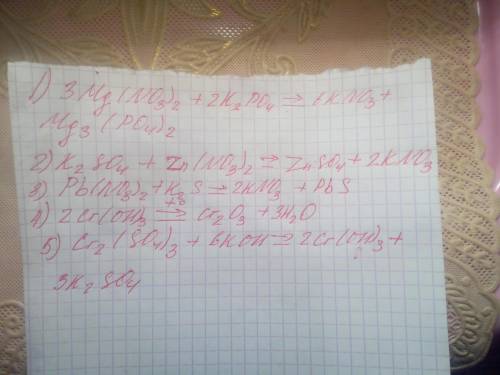 1) 3Mg(NO3)2 + 2K2PO4 → 6KNO3 +
Mg3(PO4)2
2) K2SO4 + Zn(NO3)2 → ZnSO4 + 2KNO3
3) Pb(NO3)2 + K2S → 2KNO3 + PbS
4) 2Cr(OH)3 → Cr2O3 + 3H2O
5) Cr2(SO4)3 + 6KOH → 2Cr(OH)3 +
3K2SO4